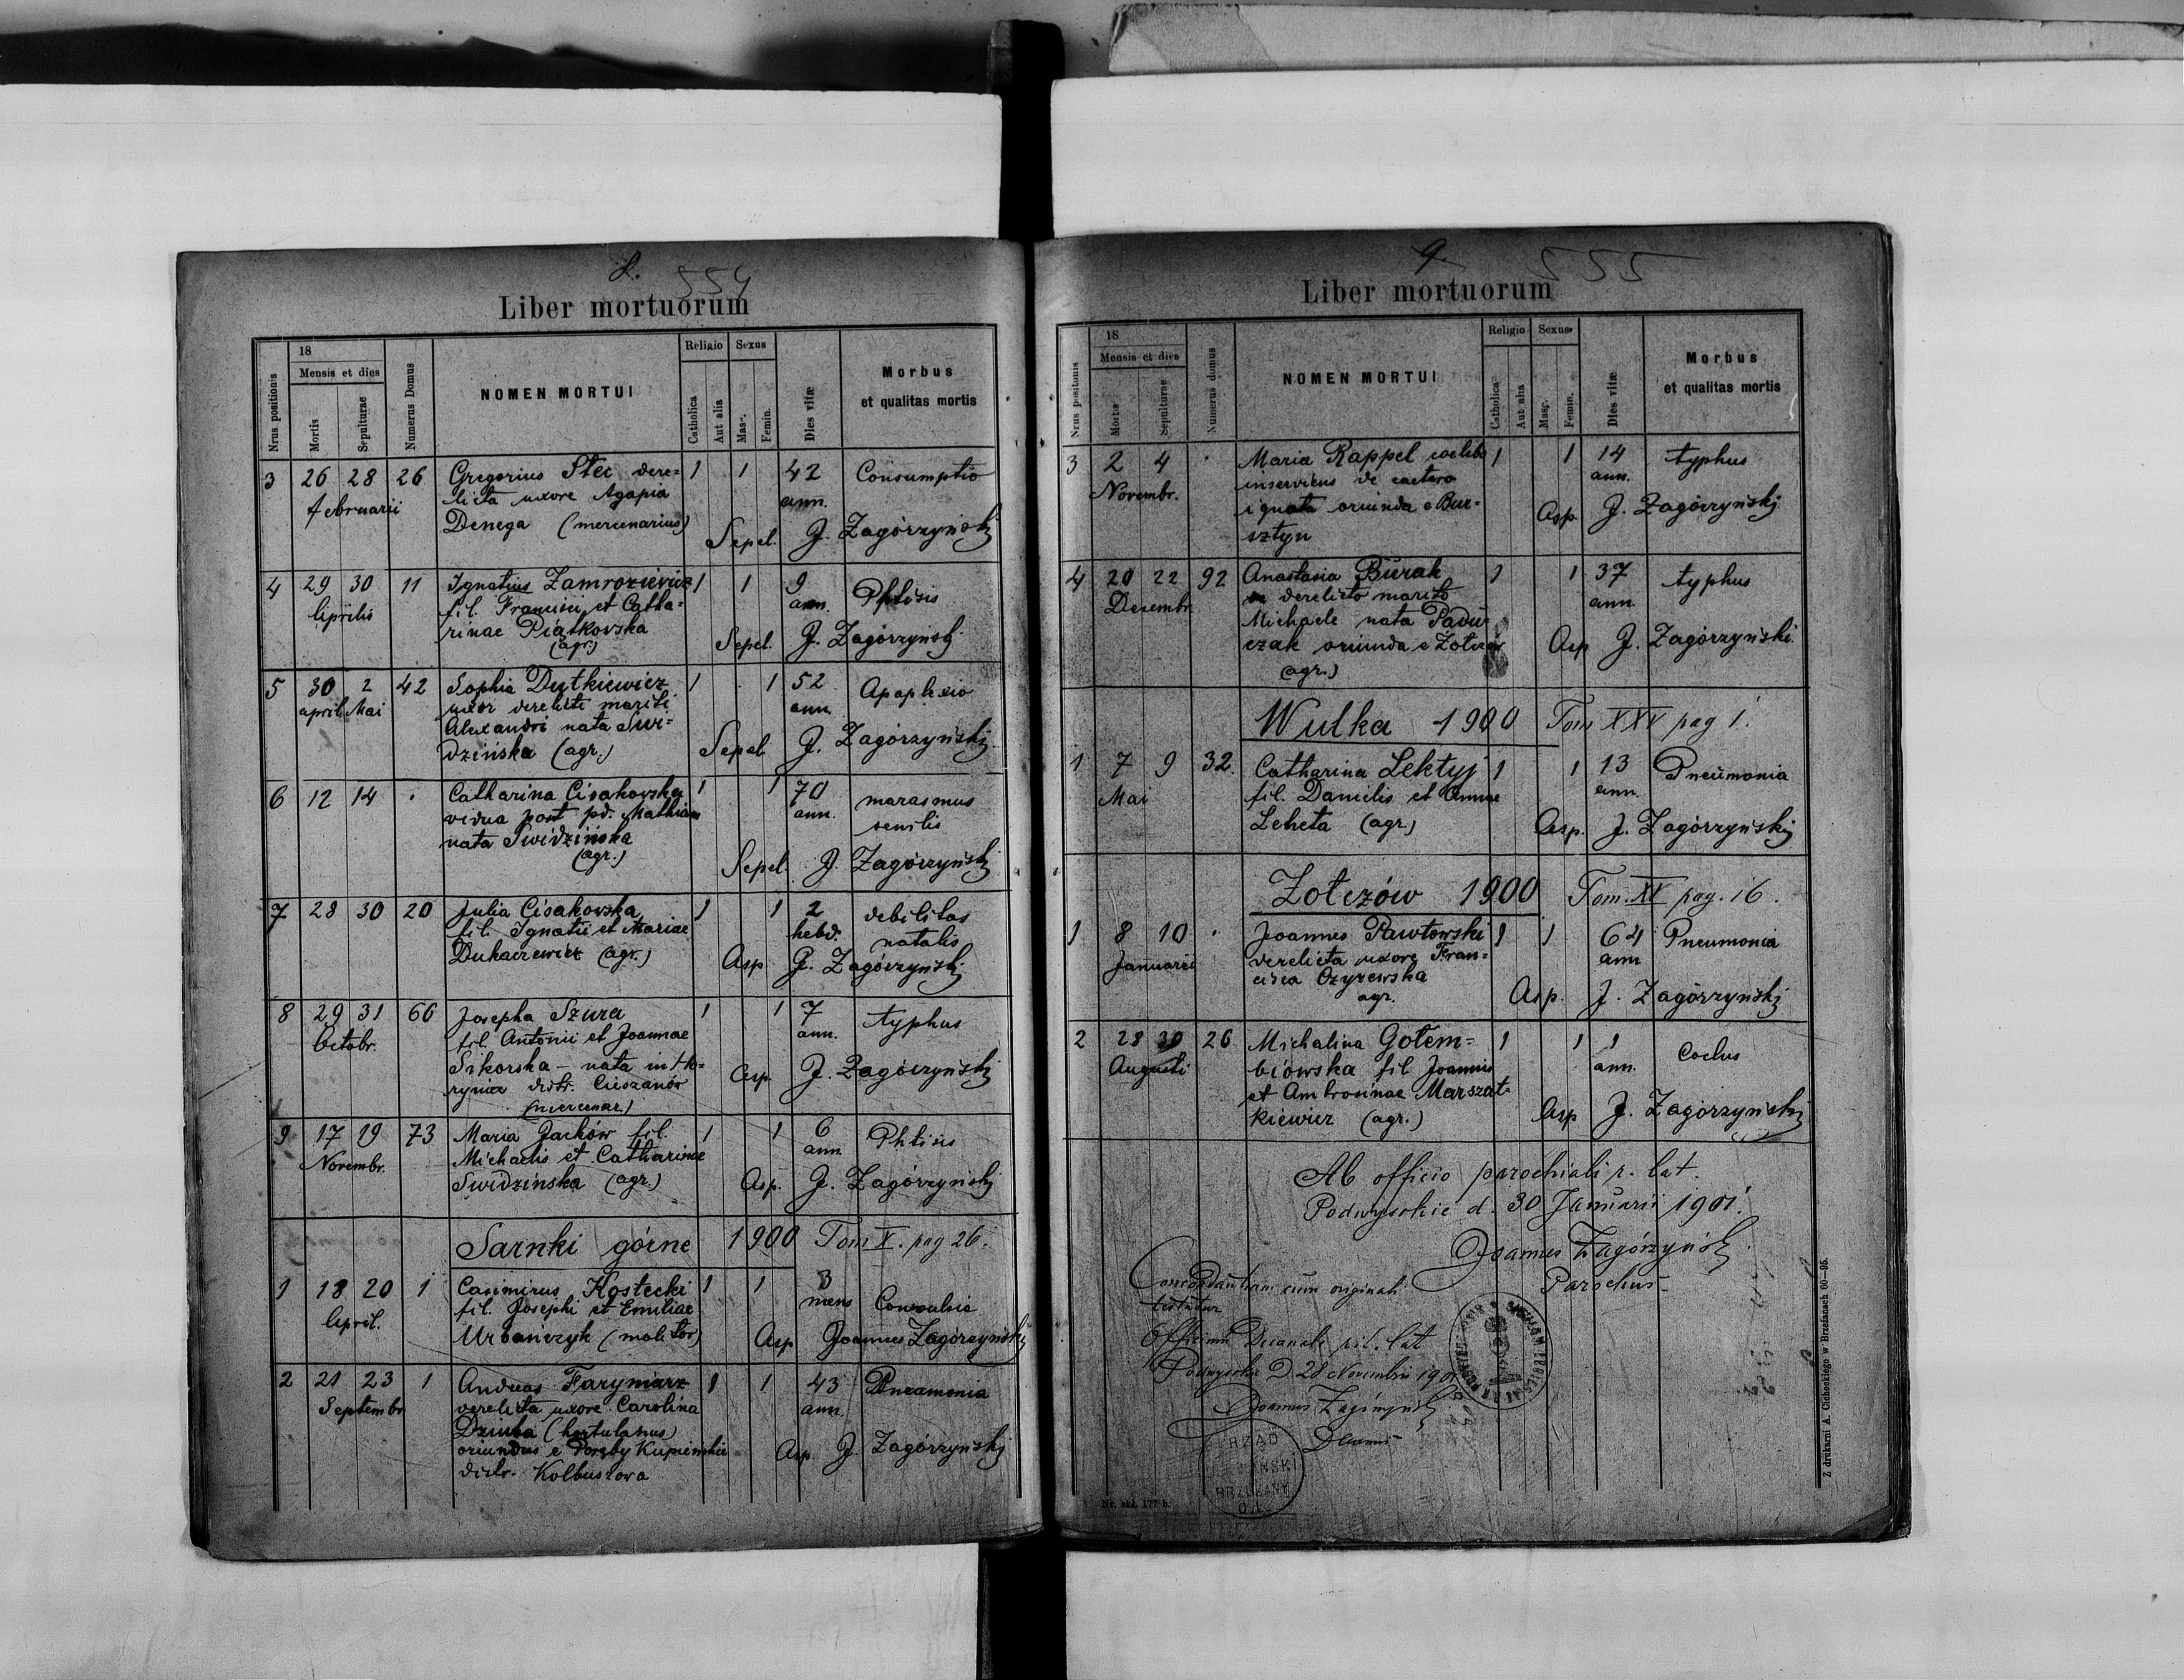 8.
554
Liber mortuorum
Nrus positionis
18
Mensis et dies
Mortis
Sepulturae
Numerus Domus
NOMEN MORTUI
Religio
Catholica
Aut alia
Sexus
Masc.
Femin.
Dies vitæ
Morbus
et qualitas mortis
3 26 28 26 Gregorius Stec dere= 1 1 42 Consumptio
Februarii licta uxore Agapia ann.
Denega (mercenarius) Sepel. J. Zagórzyński
4 29 30 11 Ignatius Zamroziewicz 1 1 9 Phtisis
Aprilis fil. Francisci et Catha= ann.
rinae Piątkovska Sepel. J. Zagórzyński
(agr.)
5 30 2 42 Sophia Dutkiewicz 1 1 52 Apoplexio
april. Mai uxor derelicti mariti ann.
Alexandri nata Swi=
dzińska (agr.) Sepel. J. Zagórzyński
6 12 14 . Catharina Cisakovska 1 1 70 marasmus
vidua post pd. Mathiam ann. senilis
nata Swidzińska
(agr.) Sepel. J. Zagórzyński
7 28 30 20 Julia Cisakovska 1 1 2 debilitas
fil. Ignatii et Mariae hebd. natalis
Dukaczewicz (agr.) Asp. J. Zagórzyński
8 29 31 66 Josepha Szura 1 1 7 typhus
Octobr. fil. Antonii et Joannae ann.
Sikorska – nata in Ho=
ryniec distr. Cieszanów Asp. J. Zagórzyński
(mercenar.)
9 17 19 73 Maria Jachów fil. 1 1 6 Phtisis
Novembr. Michaelis et Catharinae ann.
Swidzińska (agr.) Asp. J. Zagórzyński
Sarnki górne 1900 Tom X. pag 26.
1 18 20 1 Casimirus Kostecki 1 1 3 Convulsio
April. fil. Josephi et Emiliae mens
Urbańczyk (molitor) Asp Joannes Zagórzyński
2 21 23 1 Andreas Faryniarz 1 1 43 Pneumonia
Septembr. derelicta uxore Carolina ann.
Dziuba (hortulanus)
oriundus e Poręby Kupieńskie Asp. J. Zagórzyński
distr. Kolbuszowa
9.
555
Liber mortuorum
Nrus positionis
18
Mensis et dies
Mortis
Sepulturae
Numerus domus
NOMEN MORTUI
Religio
Catholica
Aut alia
Sexus
Masc.
Femin.
Dies vitæ
Morbus
et qualitas mortis
3 2 4 . Maria Rappel coelebs 1 1 14 typhus
Novembr. inserviens de caetero ann.
ignota oriunda e Bur= Asp. J. Zagórzyński
sztyn
4 20 22 92 Anastasia Burak 1 1 37 typhus
Desembr. derelicto marito ann.
Michaele nata Padu=
czak oriunda e Żołczów Asp J. Zagórzyński
(agr.)
Wulka 1900 Tom XXV pag 1.
1 7 9 32. Catharina Lektyj 1 1 13 Pneumonia
Mai fil. Danielis et Annae ann.
Leheta (agr.) Asp. J. Zagórzyński
Żołczów 1900 Tom. XV pag. 16.
1 8 10 . Joannes Pawłowski 1 1 64 Pneumonia
Januarii derelicta uxore Fran= ann
cisca Ozyrewska
agr. Asp. J. Zagórzyński
2 28 30 26 Michalina Gołem= 1 1 1 Coclus
Augusti biowska fil Joannis ann.
et Ambrosinae Marszał=
kiewicz (agr.) Asp J. Zagórzyński
Ab officio parochiali r. lat.
Podwysokie d. 30 Januarii 1901.
Joannes Zagórzyński
Parochus
Concordantiam cum originali
testatur
Officium Decanale rit. lat
Podwysokie D 28 Novembris 1901
Joannes Zagórzyński
Decanus
RZĄD
BRZEŻANY
Nr. skł. 177 b.
Z drukarni A. Cichockiego w Brzeżanach 60—95.